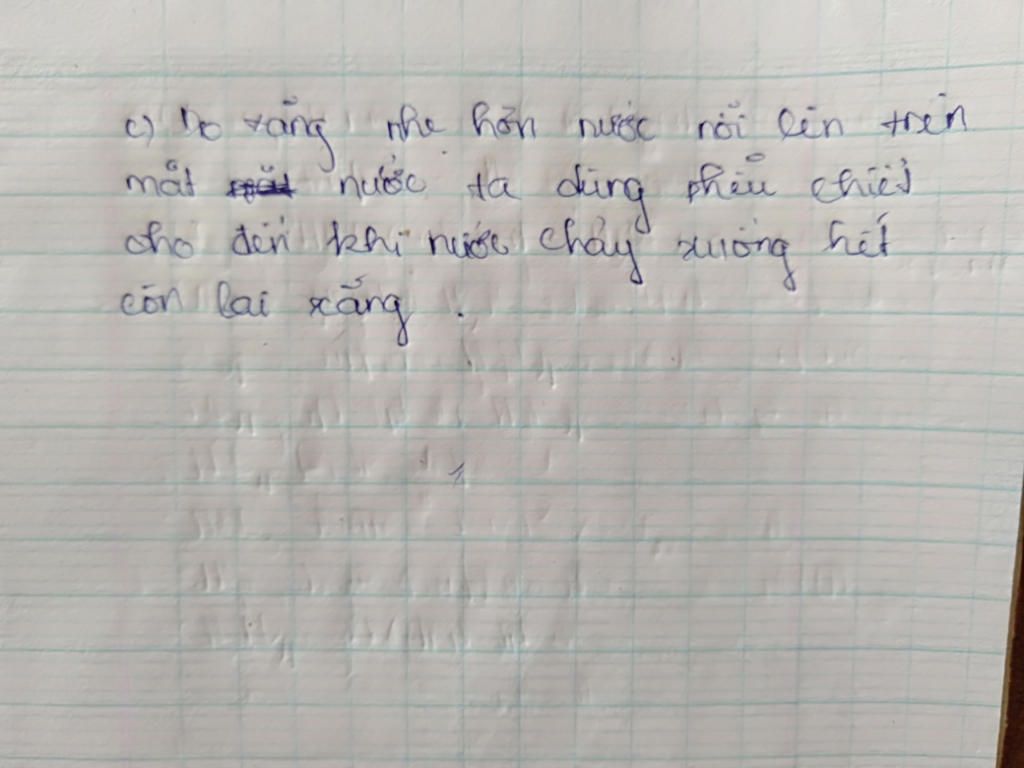 c) Do xăng nhẹ hơn nước nổi lên trên
mặt nước ta dùng phễu chiết
cho đến khi nước chảy xuống hết
còn lại xăng.